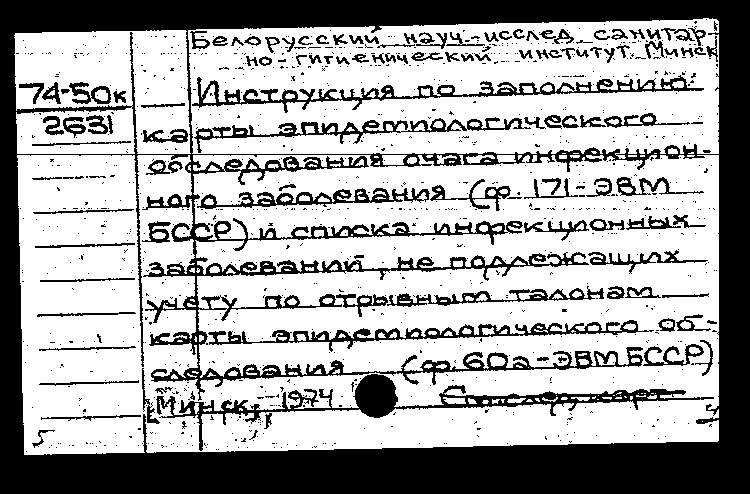 Белорусский науч.-исслед. санитар-
но-гигиенический институт. Минск
74-50к
2631
Инструкция по заполнению
карты эпидемиологического
обследования очага инфекцион-
ного заболевания (ф. 171-ЭВМ
БССР) и списка инфекционных
заболеваний, не подлежащих
учету по отрывным талонам
карты эпидемиологического об-
следования (ф. 60а-ЭВМ БССР)
Минск, 1974
См. след. карт.
5